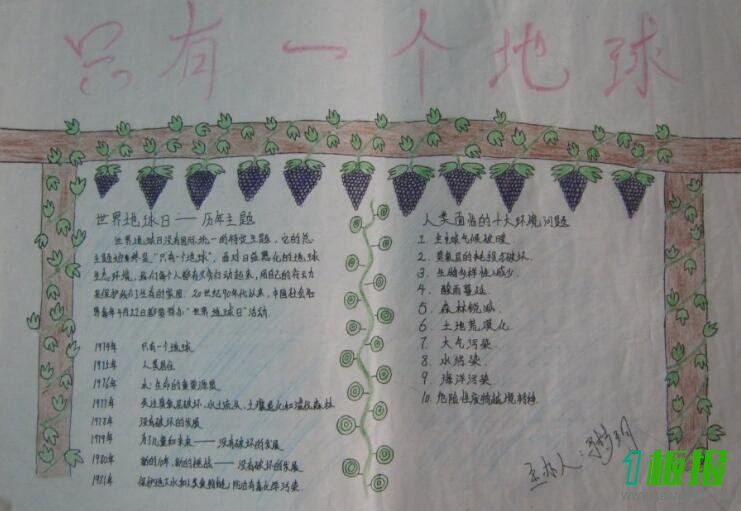 只有一个地球
世界地球日——历年主题
世界地球日没有国际统一的特定主题，它的总
主题始终是"只有一个地球"。面对日益恶化的地球
生态环境，我们每个人都有义务行动起来，用自己的行动
来保护我们生存的家园。20世纪90年代以来，中国社会各
界每年4月22日都要举办"世界地球日"活动.
1974年 只有一个地球
1975年 人类居住
1976年 水:生命的重要源泉
1977年 关注臭氧层破坏、水土流失、土壤退化和滥伐森林
1978年 没有破坏的发展
1979年 为了儿童和未来——没有破坏的发展
1980年 新的10年,新的挑战——没有破坏的发展
1981年 保护地下水和人类食物链,防治有毒化学污染.
人类面临的十大环境问题
1. 全球气候变暖
2. 臭氧层的耗损与破坏.
3. 生物多样性减少.
4. 酸雨蔓延
5. 森林锐减.
6. 土地荒漠化
7. 大气污染
8. 水污染.
9. 海洋污染.
10. 危险性废物越境转移
主办人:
1板报